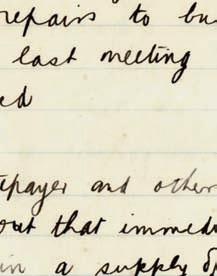 repairs to bu
last meeting
ed
tepayer and other
out that immedi
in a supply of